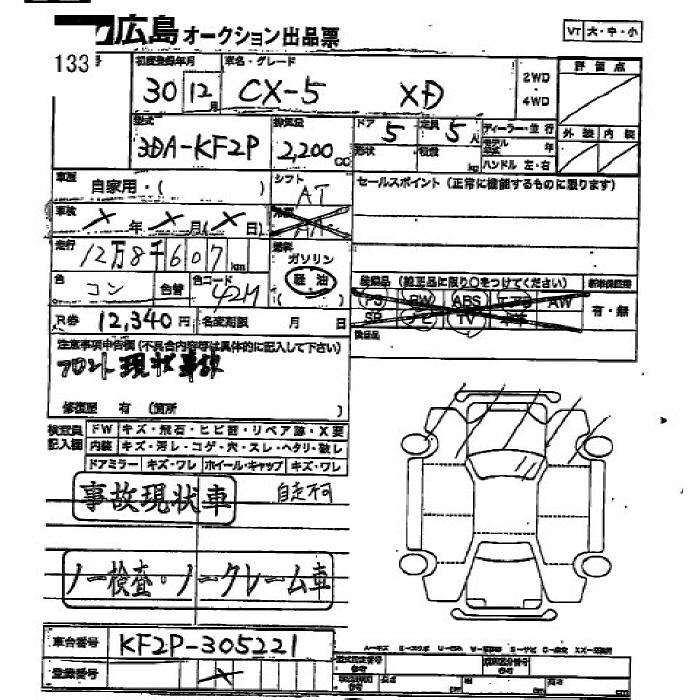 広島 オークション出品票
VT 大・中・小
133 号
初度登録年月 車名・グレード 評価点
30 12月 CX-5 XD 2WD・4WD
型式 排気量 ドア 定員 ディーラー・並行 外装 内装
3DA-KF2P 2,200cc 5 5人 モデル 年
形状 積載 kg ハンドル 左・右
車歴 自家用・( ) シフト AT セールスポイント(正常に機能するものに限ります)
車検 X年X月(X日) 冷房 AA
走行 12万8千607km 燃料 ガソリン 軽油 ( )
色 コン 色替 色コード 42M
装備品(純正品に限り○をつけてください) 新車保証書
PS PW ABS エアB AW 有・無
SR ナビ TV 本革
R券 12,340円 名変期限 月 日
後日品
注意事項申告欄(不具合内容等は具体的に記入して下さい)
フロント現状事故
修復歴 有 (箇所 )
検査員記入欄 FW キズ・飛石・ヒビ割・リペア跡・X要
内装 キズ・汚レ・コゲ・穴・スレ・ヘタリ・破レ
ドアミラー キズ・ワレ ホイール・キャップ キズ・ワレ
事故現状車 自走不可
ノー検査・ノークレーム車
車台番号 KF2P-305221
登録番号 X